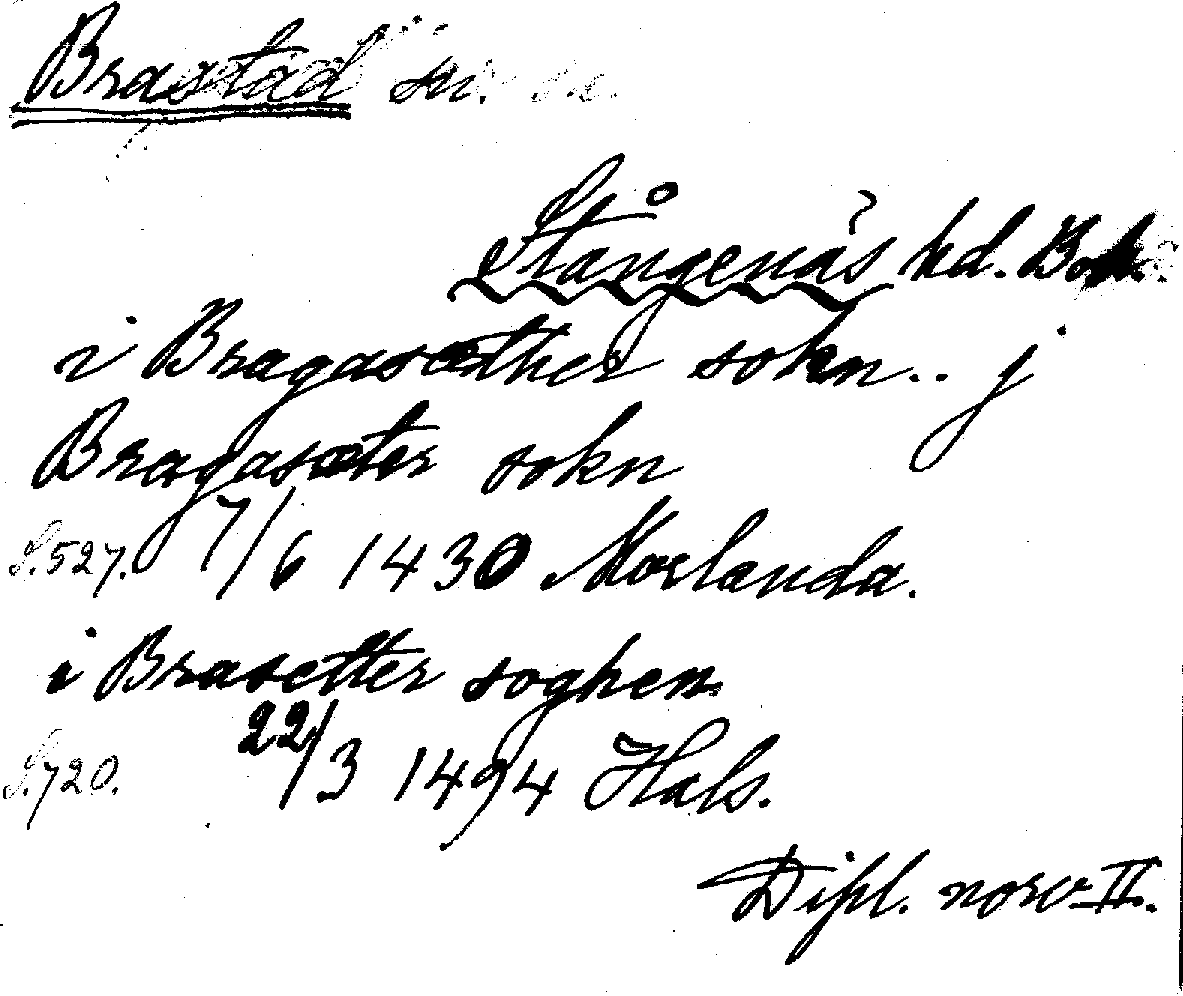 Brastad sn.
Stångenäs hd. Boh.
i Bragasæther sokn.. j
Bragasæter sokn
S.527. 7/6 1430 Morlanda.
i Brasetter soghen.
S.720. 22/3 1494 Hals.
Dipl. norv. II.